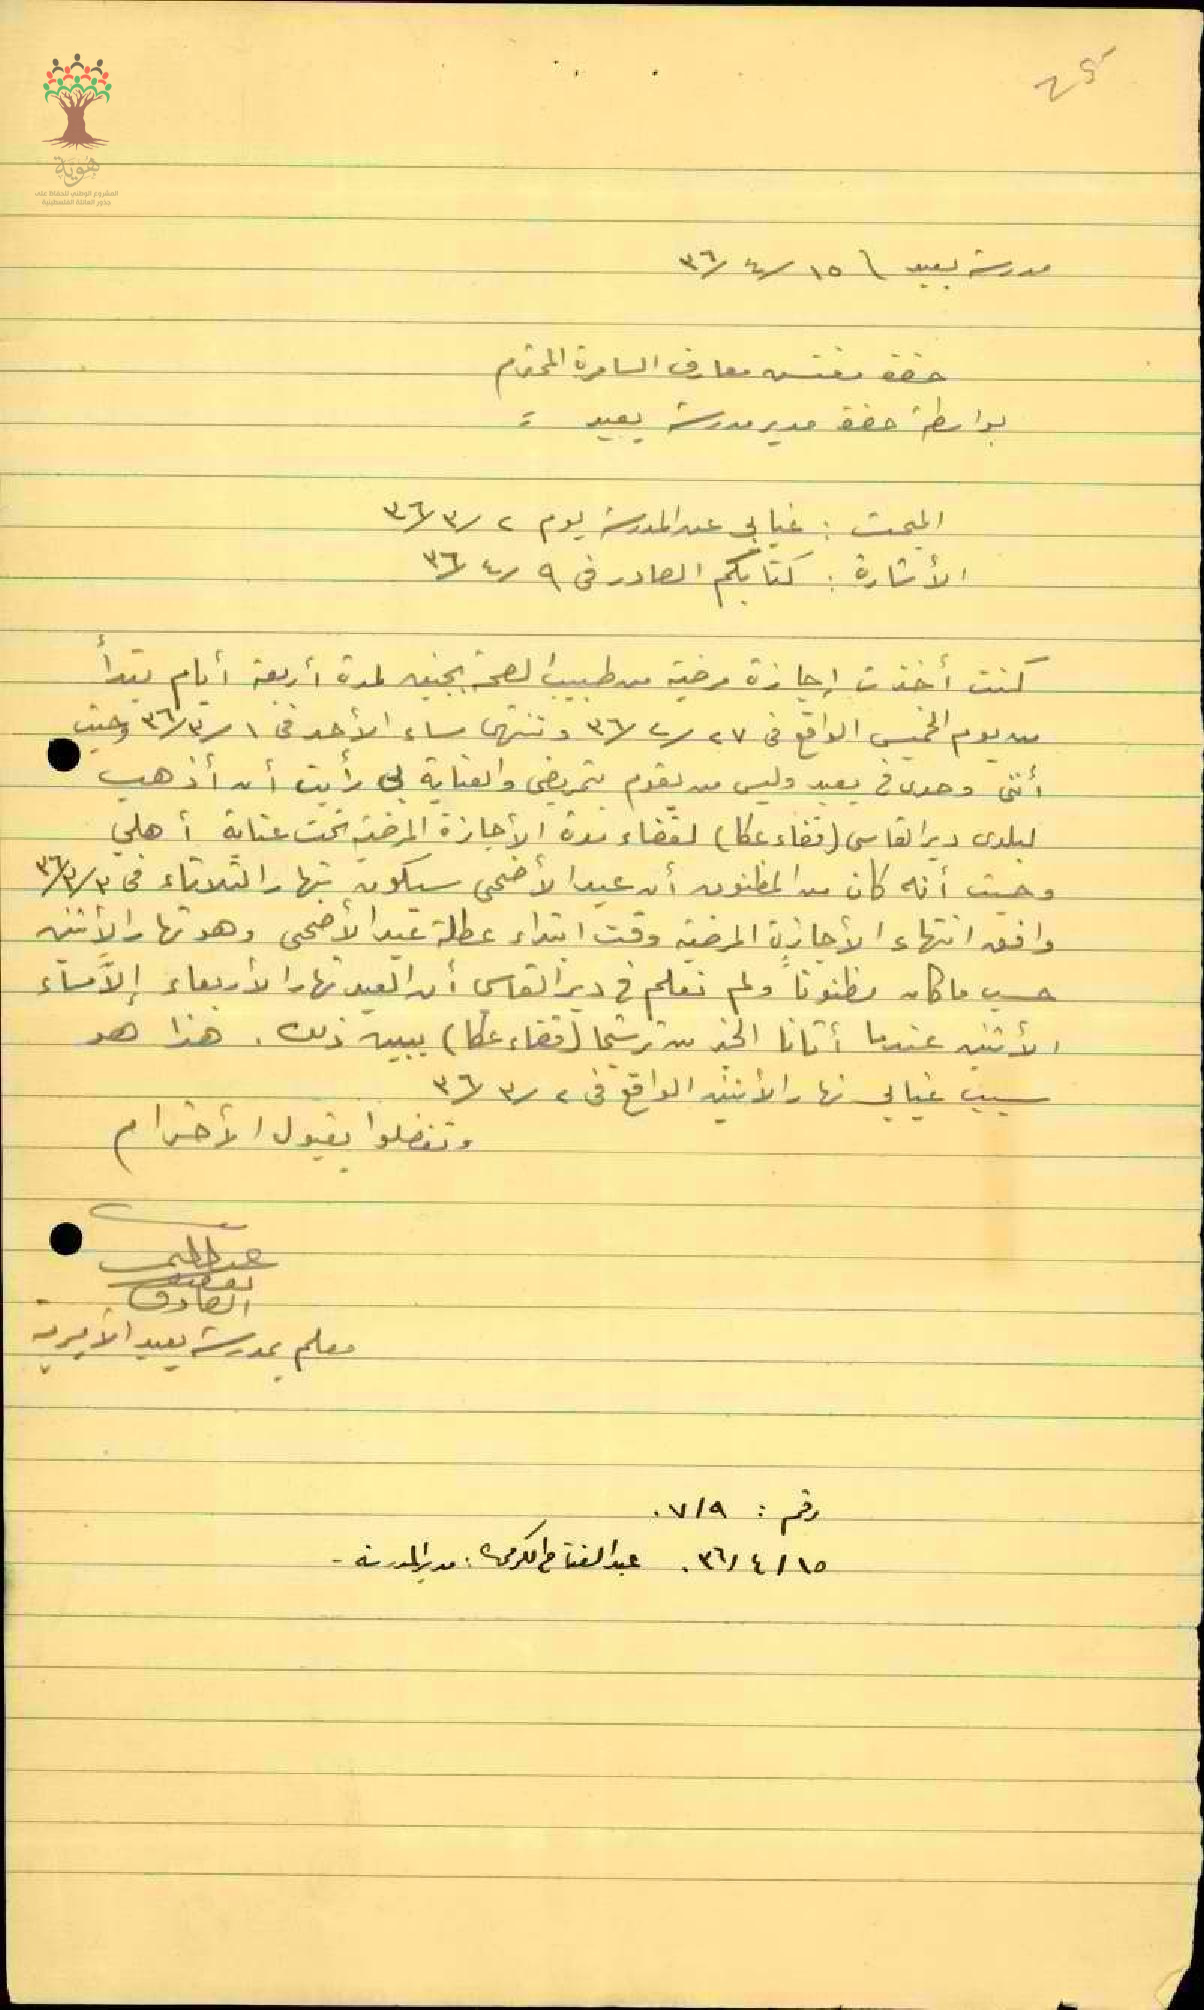 هوية
المشروع الوطني للحفاظ على
جذور العائلة الفلسطينية
مدرسة يعبد ١٥/٤/٣٦
حضرة مفتش معارف السامرة المحترم
بواسطة حضرة مدير مدرسة يعبد
المبحث : غيابي عن المدرسة يوم ٢/٣/٣٦
الأشارة : كتابكم الصادر في ٩/٤/٣٦
كنت أخذت إجازة مرضية من طبيب الصحة بجنين لمدة أربعة أيام تبتدأ
من يوم الخميس الواقع في ٢٧/٢/٣٦ وتنتهي مساء الأحد في ١/٣/٣٦ وحيث
أنني وحدي في يعبد وليس من يقوم بتمريضي والعناية بي رأيت أن أذهب
لبلدي دير القاسي (قضاء عكا) لقضاء مدة الأجازة المرضية تحت عناية أهلي
وحيث أنه كان من المظنون أن عيد الأضحى سيكون نهار الثلاثاء في ٣/٣/٣٦
وافق انتهاء الأجازة المرضية وقت ابتداء عطلة عيد الأضحى وهو نهار الأثنين
حسب ما كان مظنوناً ولم نعلم في دير القاسي أن العيد نهار الأربعاء إلاَّ مساء
الأثنين عندما أتانا الخبر من ترشيحا (قضاء عكا) يبين ذلك . هذا هو
سبب غيابي نهار الأثنين الواقع في ٢/٣/٣٦
وتفضلوا بقبول الأحترام
الصادق
معلم بمدرسة يعبد الأميرية
رقم : ٧/٩ .
١٥/٤/٣٦ . عبد الفتاح الكرمي : مدير المدرسة -